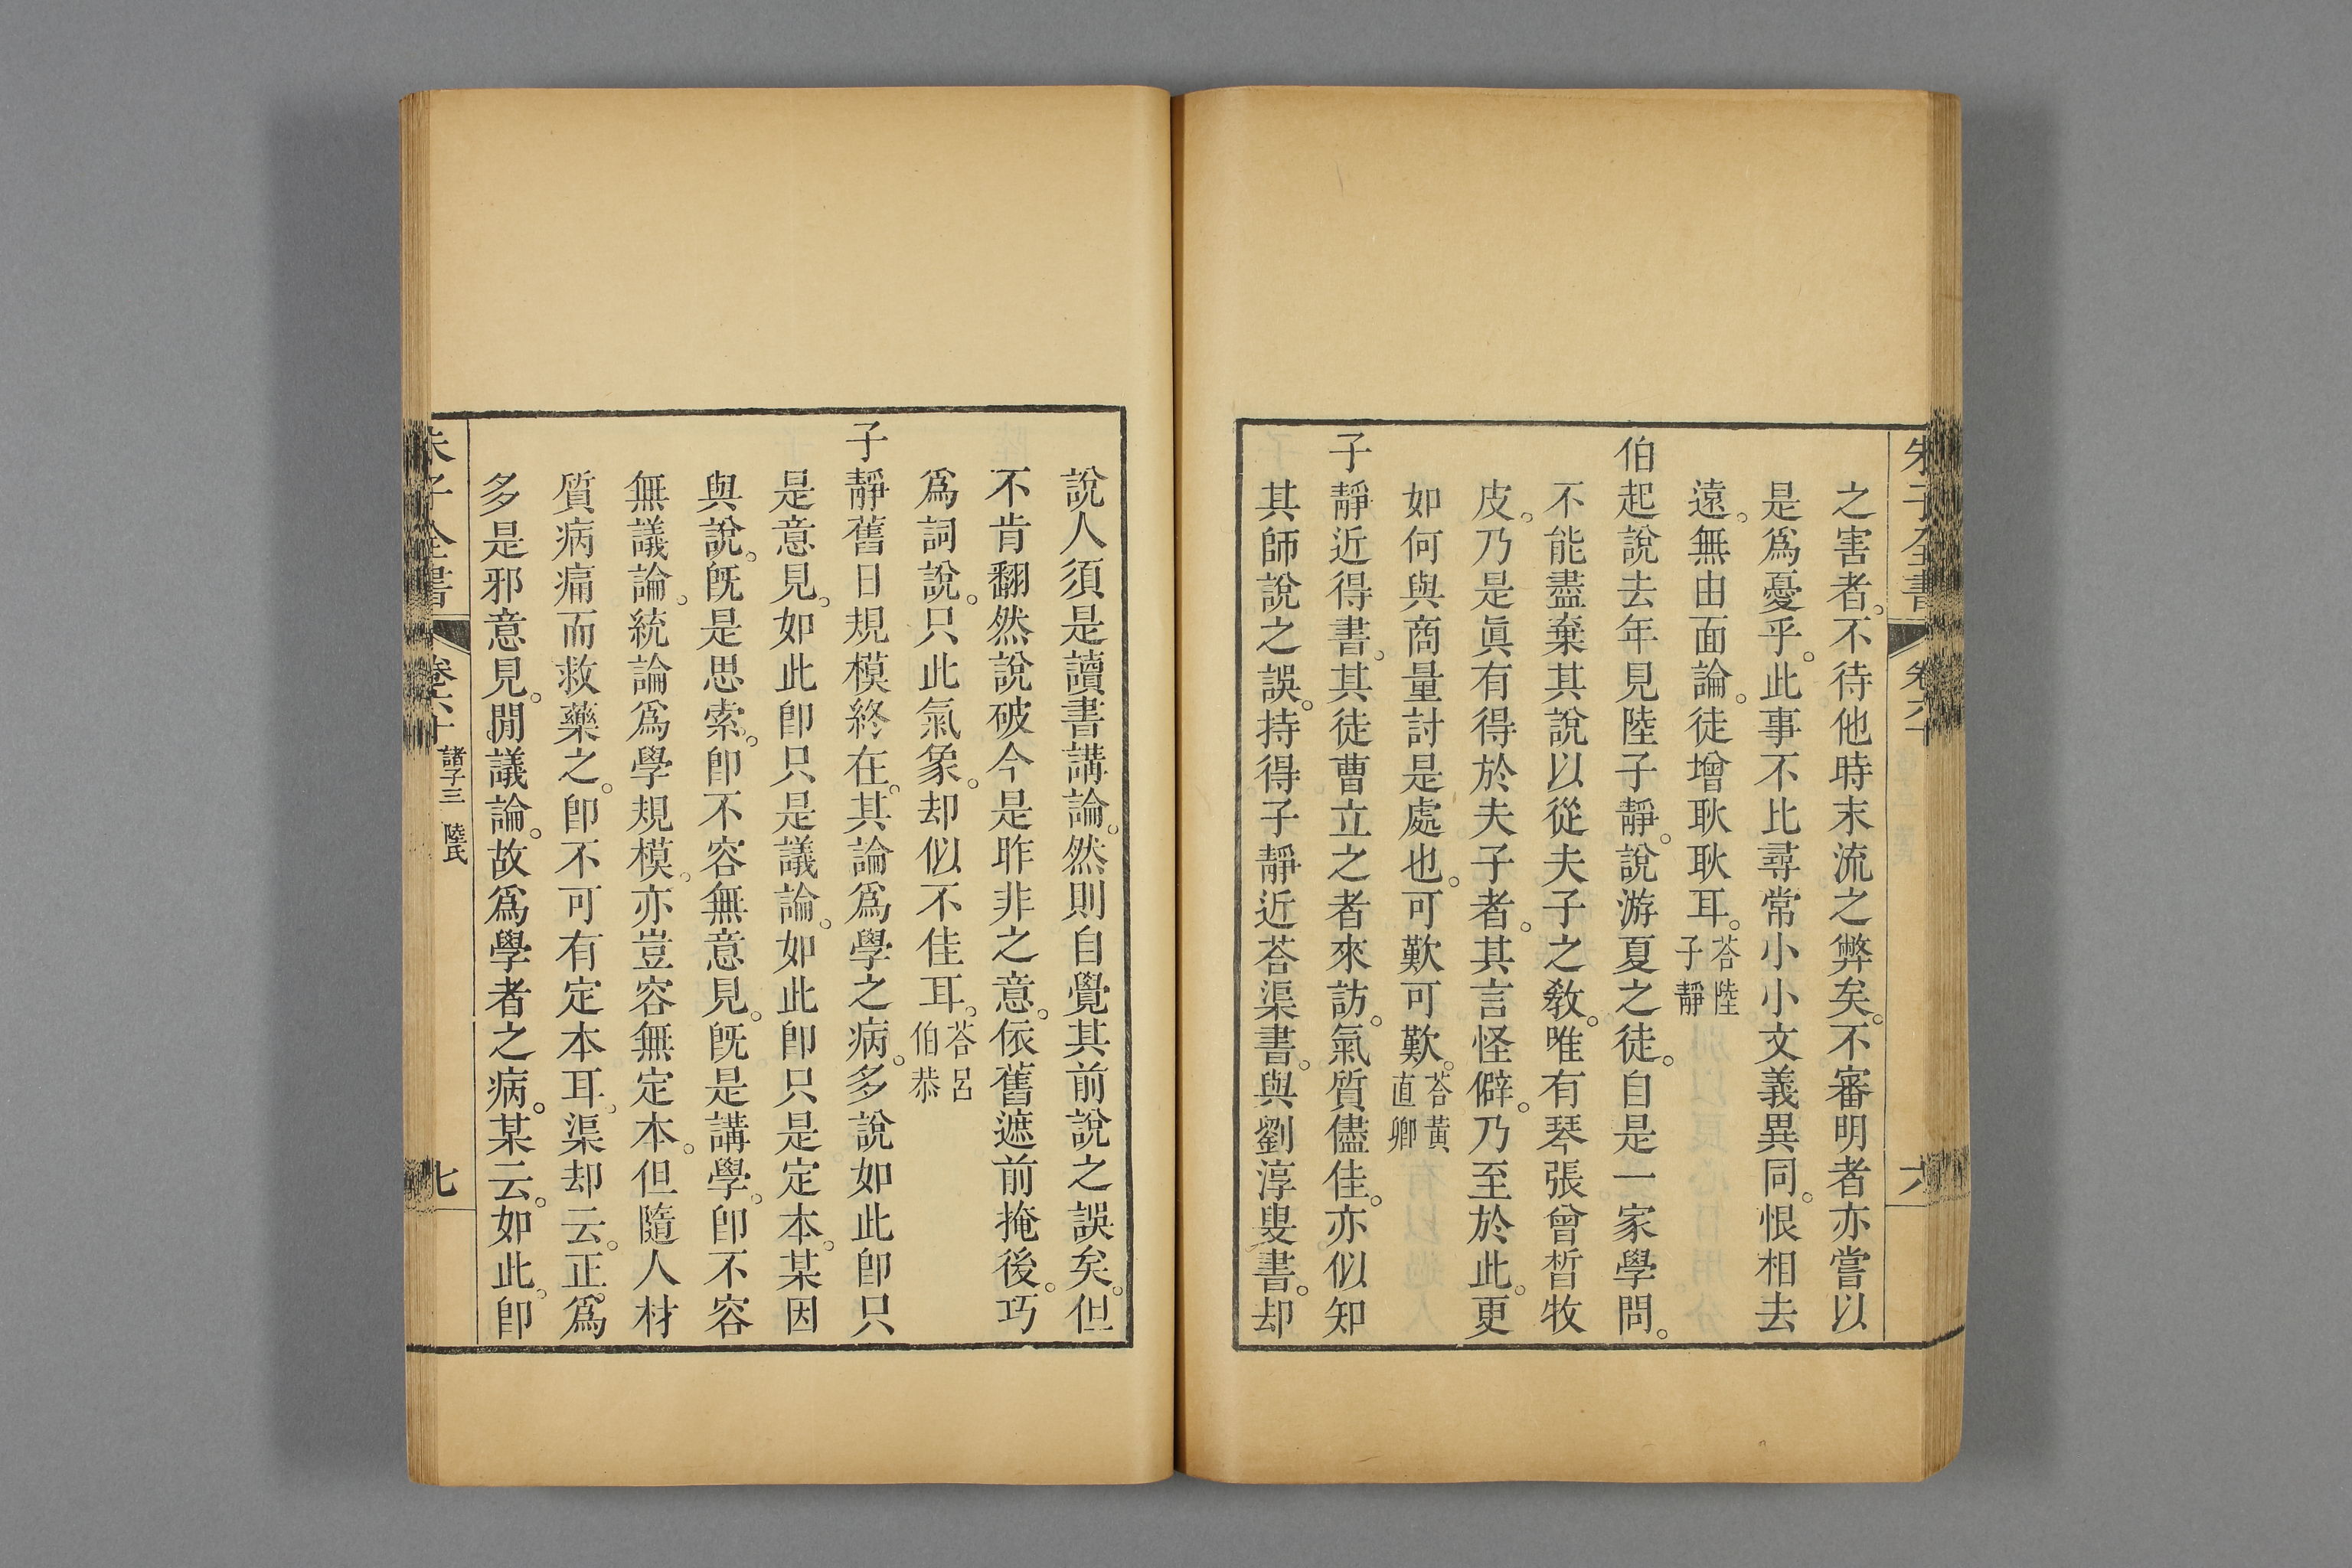 朱子全書 卷六十 六
之害者。不待他時末流之弊矣。不審明者亦嘗以
是爲憂乎。此事不比尋常小小文義異同。恨相去
遠。無由面論。徒增耿耿耳。荅陸子靜
伯起說去年見陸子靜。說游夏之徒。自是一家學問。
不能盡棄其說以從夫子之敎。唯有琴張曾晳牧
皮。乃是眞有得於夫子者。其言怪僻。乃至於此。更
如何與商量討是處也。可歎可歎。荅黃直卿
子靜近得書。其徒曹立之者來訪。氣質儘佳。亦似知
其師說之誤。持得子靜近荅渠書。與劉淳叟書。却
說人須是讀書講論。然則自覺其前說之誤矣。但
不肯翻然說破今是昨非之意。依舊遮前掩後。巧
爲詞說。只此氣象。却似不佳耳。荅呂伯恭
子靜舊日規模終在。其論爲學之病。多說如此卽只
是意見。如此卽只是議論。如此卽只是定本。某因
與說。旣是思索。卽不容無意見。旣是講學。卽不容
無議論。統論爲學規模。亦豈容無定本。但隨人材
質病痛而救藥之。卽不可有定本耳。渠却云。正爲
多是邪意見。閒議論。故爲學者之病。某云。如此。卽
朱子全書 卷六十 諸子三 陸氏 七